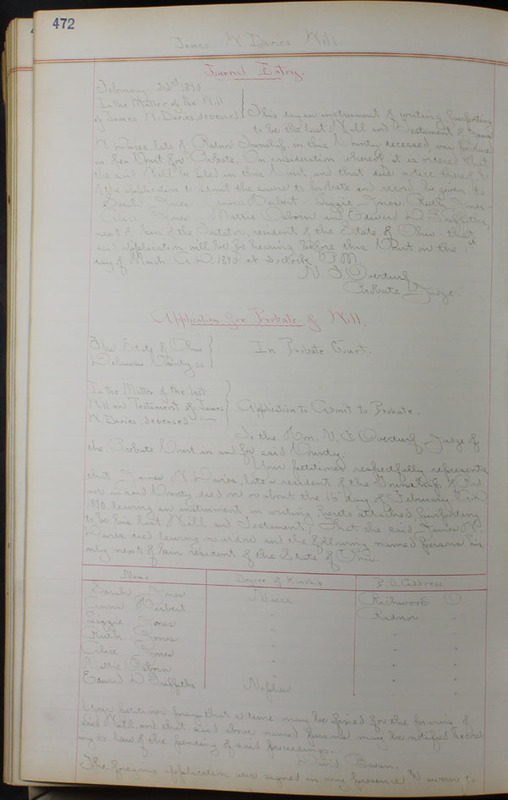 472
James W. Davies Will
Journal Entry.
February 22nd 1890.
In the Matter of the Will
of James W. Davies deceased
This day an instrument of writing purporting
to be the last Will and Testament of James
W. Davies late of Radnor Township in this County deceased was produced
in this Court for Probate. On consideration whereof it is ordered that
the said Will be filed in this Court and that said notice
of the application to admit the same to probate and record be given to
Sarah Jones Herbert Lizzie Jones, Ruth Jones
Jones Mattie Osborn and Edward D. Griffiths
next of kin of the Testator, resident of the State of Ohio that
said application will be for hearing before this Court on the 1st
day of March A.D. 1890 at 2 o'clock P.M.
Overturf
Probate Judge
Application for Probate of Will.
The State of Ohio
Delaware County ss
In Probate Court.
In the Matter of the last
Will and Testament of James
W. Davies deceased
Application to Admit to Probate.
To the Hon. Overturf, Judge of
the Probate Court in and for said County.
Your petitioner respectfully represents
that James W. Davies, late a resident of the Township of Rad-
nor in said County died on or about the 16 day of February A.D.
1890 leaving an instrument in writing hereto attached purporting
to be his last Will and Testament; That the said James W.
Davies died leaving no widow and the following named persons his
only next of kin resident of the State of Ohio.
Name Degree of Kinship P.O. Address
Sarah Jones Niece O
Herbert " Radnor "
Lizzie Jones " " "
Ruth Jones " " "
Jones " " "
Mattie Osborn " " "
Edward D. Griffiths Nephew " "
Your petitioner prays that a time may be fixed for the proving of
said Will, and that said above named persons may be notified accord-
ing to law of the pending of said proceedings.
David
The foregoing application was signed in my presence & sworn to